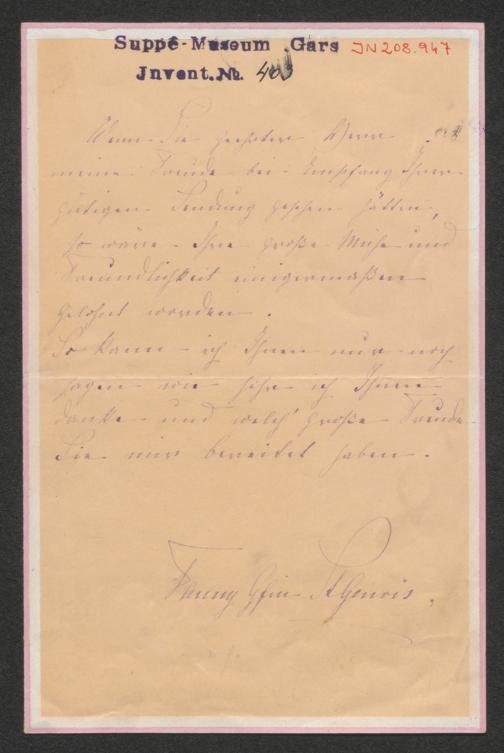 Suppé-Museum Gars JN 208.947
Jnvent.№ 403
Wenn Sie geehrter Herr
meine Freude bei Empfang Ihrer
gütigen Sendung gesehen hätten,
so wäre Ihre große Mühe und
Freundlichkeit einigermaßen
gelohnt worden.
So kann ich Ihnen nur noch
sagen wie sehr ich Ihnen
danke und welch' große Freude
Sie mir bereitet haben.
Fanny Gfin St Genois.